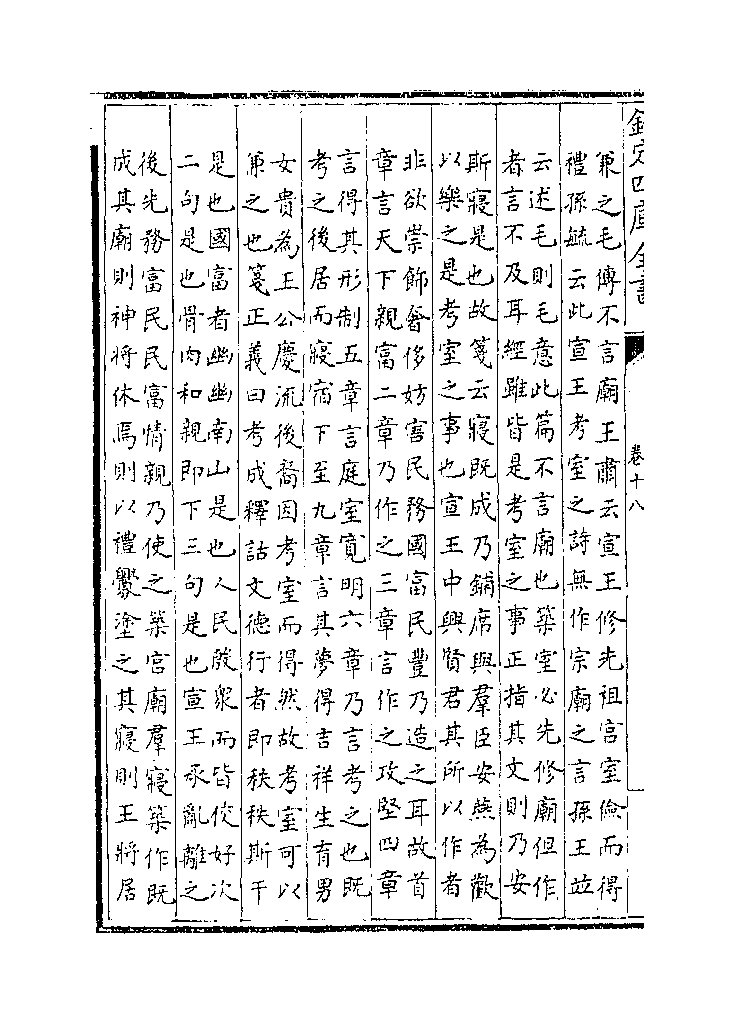 欽定四庫全書
卷十八
兼之毛傳不言廟王肅云宣王修先祖宮室儉而得
禮孫毓云此宣王考室之詩無作宗廟之言孫王並
云述毛則毛意此篇不言廟也築室必先修廟但作
者言不及耳經雖皆是考室之事正指其文則乃安
斯寢是也故箋云寢既成乃鋪席與羣臣安燕為歡
以樂之是考室之事也宣王中興賢君其所以作者
非欲崇飾奢侈妨害民務國富民豐乃造之耳故首
章言天下親富二章乃作之三章言作之攻堅四章
言得其形制五章言庭室寬明六章乃言考之也既
考之後居而寢宿下至九章言其夢得吉祥生育男
女貴為王公慶流後裔因考室而得然故考室可以
兼之也箋正義曰考成釋詁文德行者即秩秩斯干
是也國富者幽幽南山是也人民殷衆而皆佼好次
二句是也骨肉和親即下三句是也宣王承亂離之
後先務富民民富情親乃使之築宮廟羣寢築作既
成其廟則神將休焉則以禮釁塗之其寢則王將居